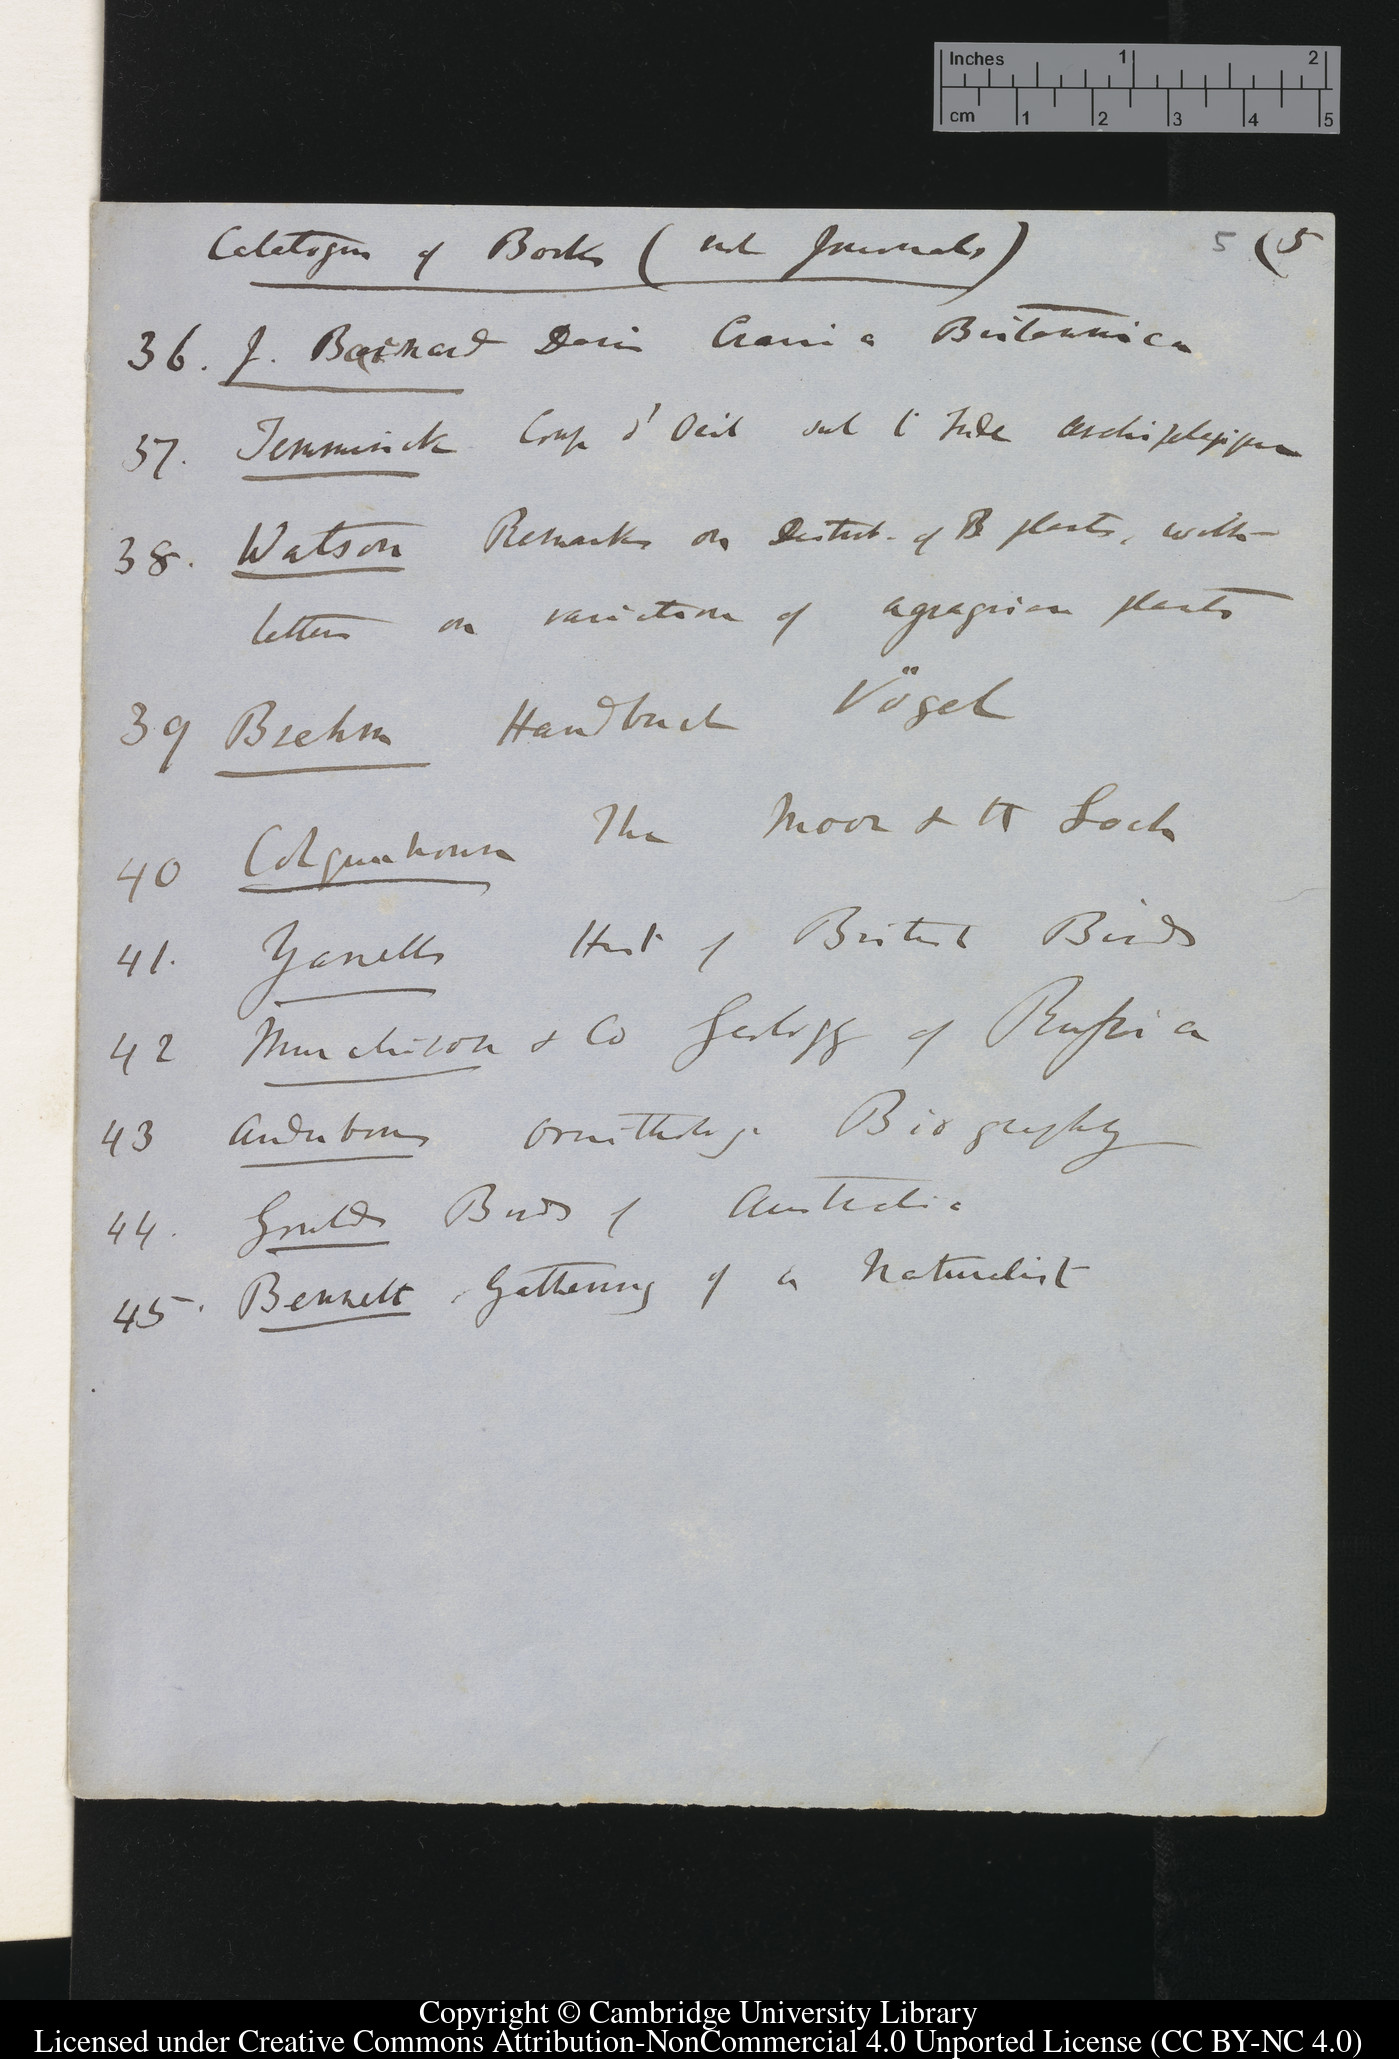 Inches 1 2
cm 1 2 3 4 5
Catalogue of Books (not Journals) 5 (5
36. J. Barnard Davis Crania Britannica
37. Temminck Coup d' Oeil sur l' Inde archipelagique
38. Watson Remarks on Distrib. of B plants, with
letters on variation of agragrian plants
39 Brehm Handbuch Vögel
40 Colquahoun The Moor & the Loch
41. Yarrells Hist of British Birds
42 Murchison & Co Geology of Russia
43 Audubons Ornitholog. Biography
44. Goulds Birds of Australia
45. Bennett Gathering of a Naturalist
Copyright © Cambridge University Library
Licensed under Creative Commons Attribution-NonCommercial 4.0 Unported License (CC BY-NC 4.0)